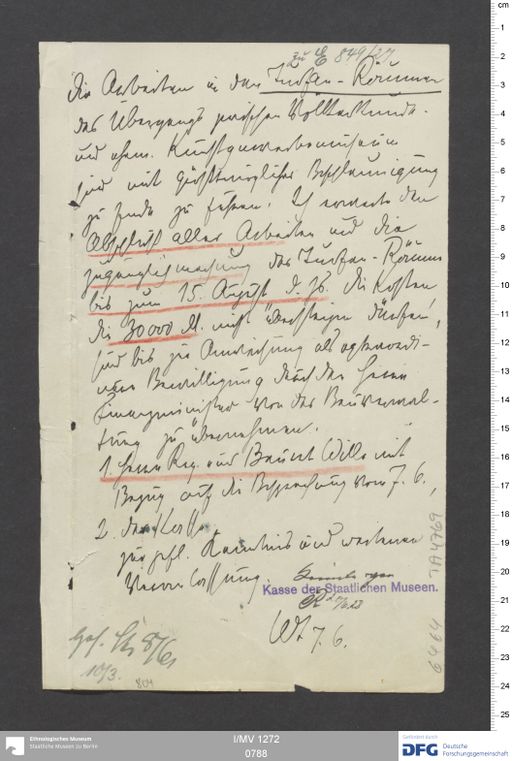 zu E 849/27
Die Arbeiten in den Turfan-Räumen
des Übergangs zwischen Völkerkunde-
und ehem. Kunstgewerbemuseum
sind mit größtmöglicher Beschleunigung
zu Ende zu führen. Ich erwarte den
Abschluß aller Arbeiten und die
Zugänglichmachung der Turfan-Räume
bis zum 15. August d. Js. Die Kosten
die 30000 M. nicht übersteigen dürfen,
sind bis zur Anweisung als
Bewilligung durch den Herrn
Finanzminister von der Bauverwal-
tung zu übernehmen.
1. Herrn Reg. und Baurat Wille mit
Bezug auf die Besprechung vom 7. 6.,
2. der Kasse
zur gefl. Kenntnis und weiteren
Veranlassung.
Kasse der Staatlichen Museen.
7. 6.
10/3.
804
IA4769
6464
Ethnologisches Museum
Staatliche Museen zu Berlin
I/MV 1272
0788
Gefördert durch
DFG Deutsche
Forschungsgemeinschaft
cm
1
2
3
4
5
6
7
8
9
10
11
12
13
14
15
16
17
18
19
20
21
22
23
24
25